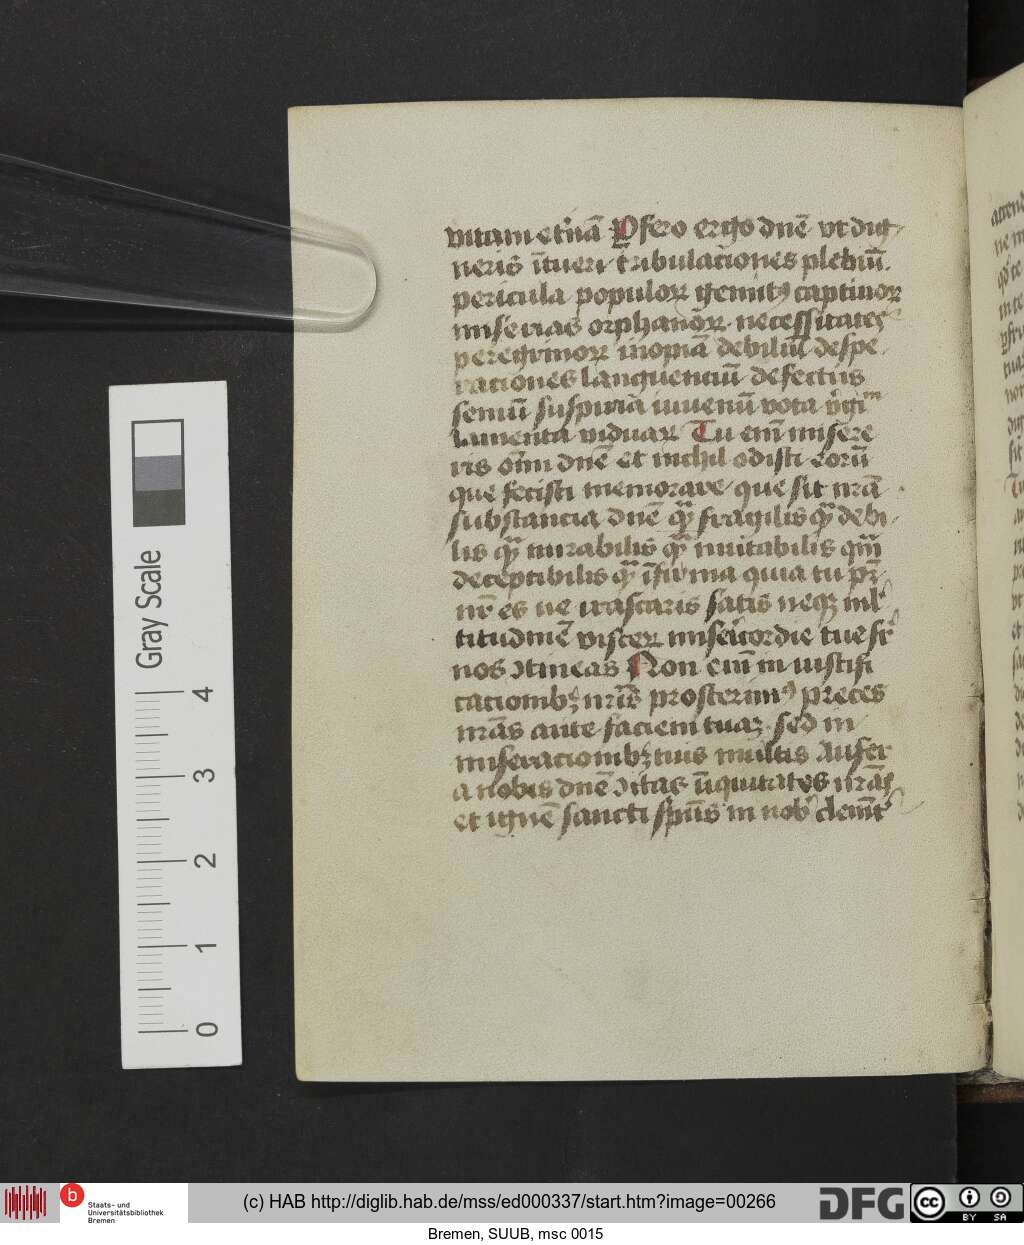 vitam et̄nā ꝓfero ergo dn̄e vt dig
neris ītueri tribulaciones plebiū.
pericula populoꝝ gemitꝰ captiuoꝝ
miserias orphanoꝝ necessitates
peregrinoꝝ inopiā debiliū despe
raciones languenciū defectus
seniū suspiria iuuenū vota v̓gi
lamenta viduaꝝ Tu em̄ misere
ris om̄i dn̄e et nichil odisti eorū
que fecisti memorare que sit nr̄a
substancia dn̄e qꝫ fragilis qꝫ debi
lis qꝫ mirabilis qꝫ mutabilis qm̄
deceptibilis qꝫ īfirma quia tu pr̄
nr̄ es ne irascaris satis neqꝫ ml̓
titudinē visceꝝ misericordie tue sr̄
nos ↄtineas Non em̄ in iustifi
cacionibꝫ nr̄is prosternimꝰ preces
nr̄as ante faciem tuaꝫ sed in
miseracionibꝫ tuis multis Aufer
a nobis dn̄e ↄ̄ctas iniquitates nr̄as
et ignē sancti sp̄ūs in nob̓ clem̄t̓
Gray Scale
4
3
2
1
0
b Staats- und
Universitätsbibliothek
Bremen
(c) HAB http://diglib.hab.de/mss/ed000337/start.htm?image=00266
DFG
cc BY SA
Bremen, SUUB, msc 0015